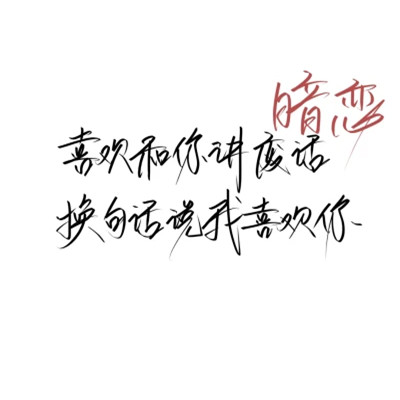 暗恋
喜欢和你讲废话
换句话说我喜欢你